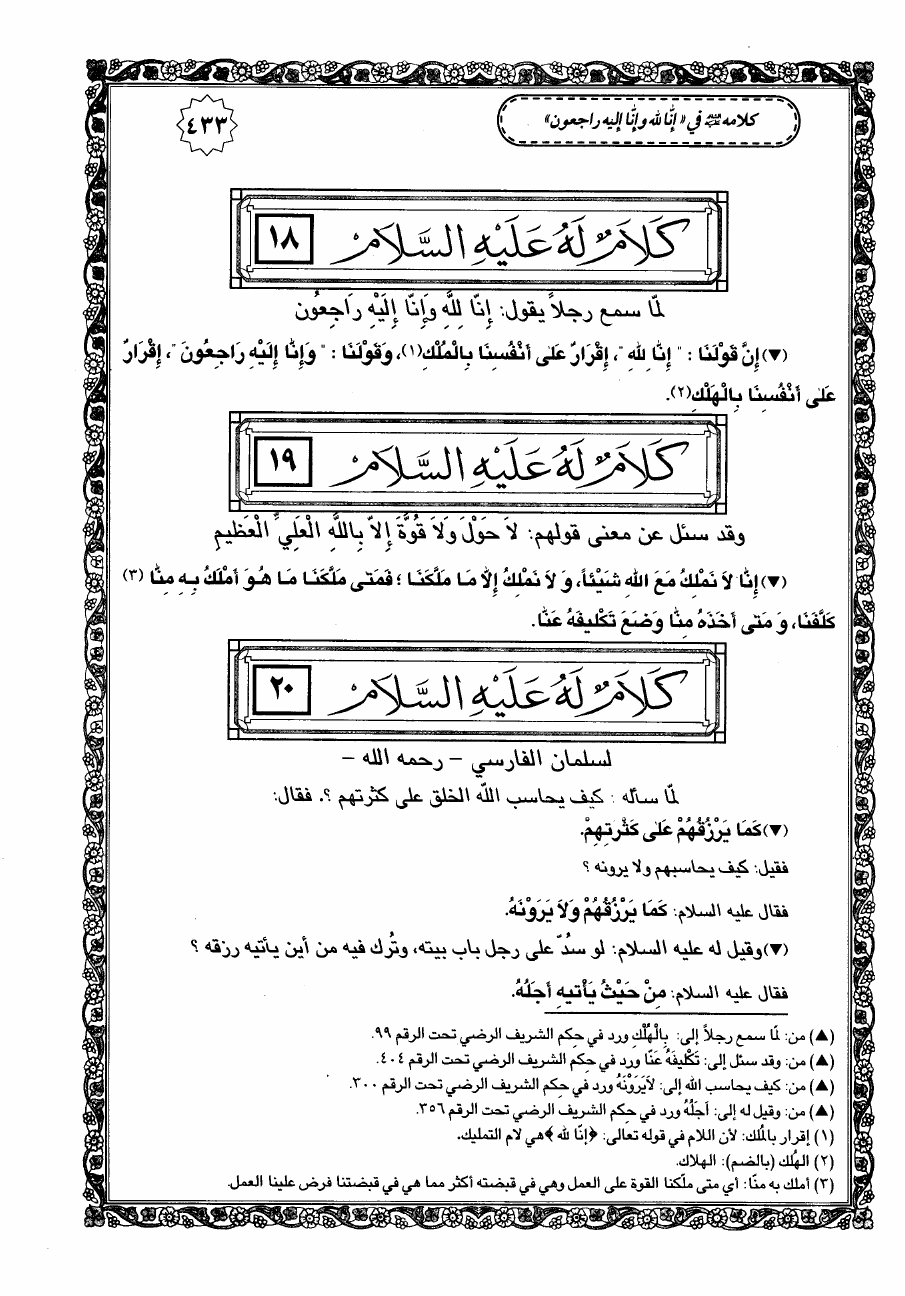 كلامه ﷺ في «إنّا لله وإنّا إليه راجعون»
٤٣٣
كَلَامٌ لَهُ عَلَيْهِ السَّلَامُ
١٨
لمّا سمع رجلاً يقول: إِنَّا لِلَّهِ وَإِنَّا إِلَيْهِ رَاجِعُون
(▼) إِنَّ قَوْلَنَا : " إِنَّا لِلهِ "، إِقْرَارٌ عَلى أَنْفُسِنَا بِالْمُلْكِ(١)، وَقَوْلَنَا : " وَإِنَّا إِلَيْهِ رَاجِعُونَ "، إِقْرَارٌ
عَلى أَنْفُسِنَا بِالْهَلْكِ(٢).
كَلَامٌ لَهُ عَلَيْهِ السَّلَامُ
١٩
وقد سئل عن معنى قولهم: لاَ حَوْلَ وَلاَ قُوَّةَ إِلاّ بِاللَّهِ الْعَلِيِّ الْعَظِيمِ
(▼) إِنَّا لاَ نَمْلِكُ مَعَ اللهِ شَيْئاً، وَ لاَ نَمْلِكُ إِلاّ مَا مَلَّكَنَا ؛ فَمَتى مَلَّكَنَا مَا هُوَ أَمْلَكُ بِهِ مِنَّا (٣)
كَلَّفَنَا، وَ مَتى أَخَذَهُ مِنَّا وَضَعَ تَكْلِيفَهُ عَنَّا.
كَلَامٌ لَهُ عَلَيْهِ السَّلَامُ
٢٠
لسلمان الفارسي – رحمه الله –
لمّا سأله : كيف يحاسب اللّه الخلق على كثرتهم ؟. فقال:
(▼) كَمَا يَرْزُقُهُمْ عَلى كَثْرَتِهِمْ.
فقيل: كيف يحاسبهم ولا يرونه ؟
فقال عليه السلام: كَمَا يَرْزُقُهُمْ وَلاَ يَرَوْنَهُ.
(▼) وقيل له عليه السلام: لو سُدّ على رجل باب بيته، وتُرك فيه من أين يأتيه رزقه ؟
فقال عليه السلام: مِنْ حَيْثُ يَأْتيهِ أَجَلُهُ.
(▲) من: لمّا سمع رجلاً إلى: بِالْهُلْكِ ورد في حِكم الشريف الرضي تحت الرقم ٩٩.
(▲) من: وقد سئل إلى: تَكْليفَهُ عَنَّا ورد في حِكم الشريف الرضي تحت الرقم ٤٠٤.
(▲) من: كيف يحاسب الله إلى: لاَيَرَوْنَهُ ورد في حِكم الشريف الرضي تحت الرقم ٣٠٠.
(▲) من: وقيل له إلى: أَجَلُهُ ورد في حِكم الشريف الرضي تحت الرقم ٣٥٦.
(١) إقرار بالمُلك: لأن اللام في قوله تعالى: ﴿إنّا لله﴾هي لام التمليك.
(٢) الهُلك (بالضم): الهلاك.
(٣) أملك به منّا: أي متى ملّكنا القوة على العمل وهي في قبضته أكثر مما هي في قبضتنا فرض علينا العمل.